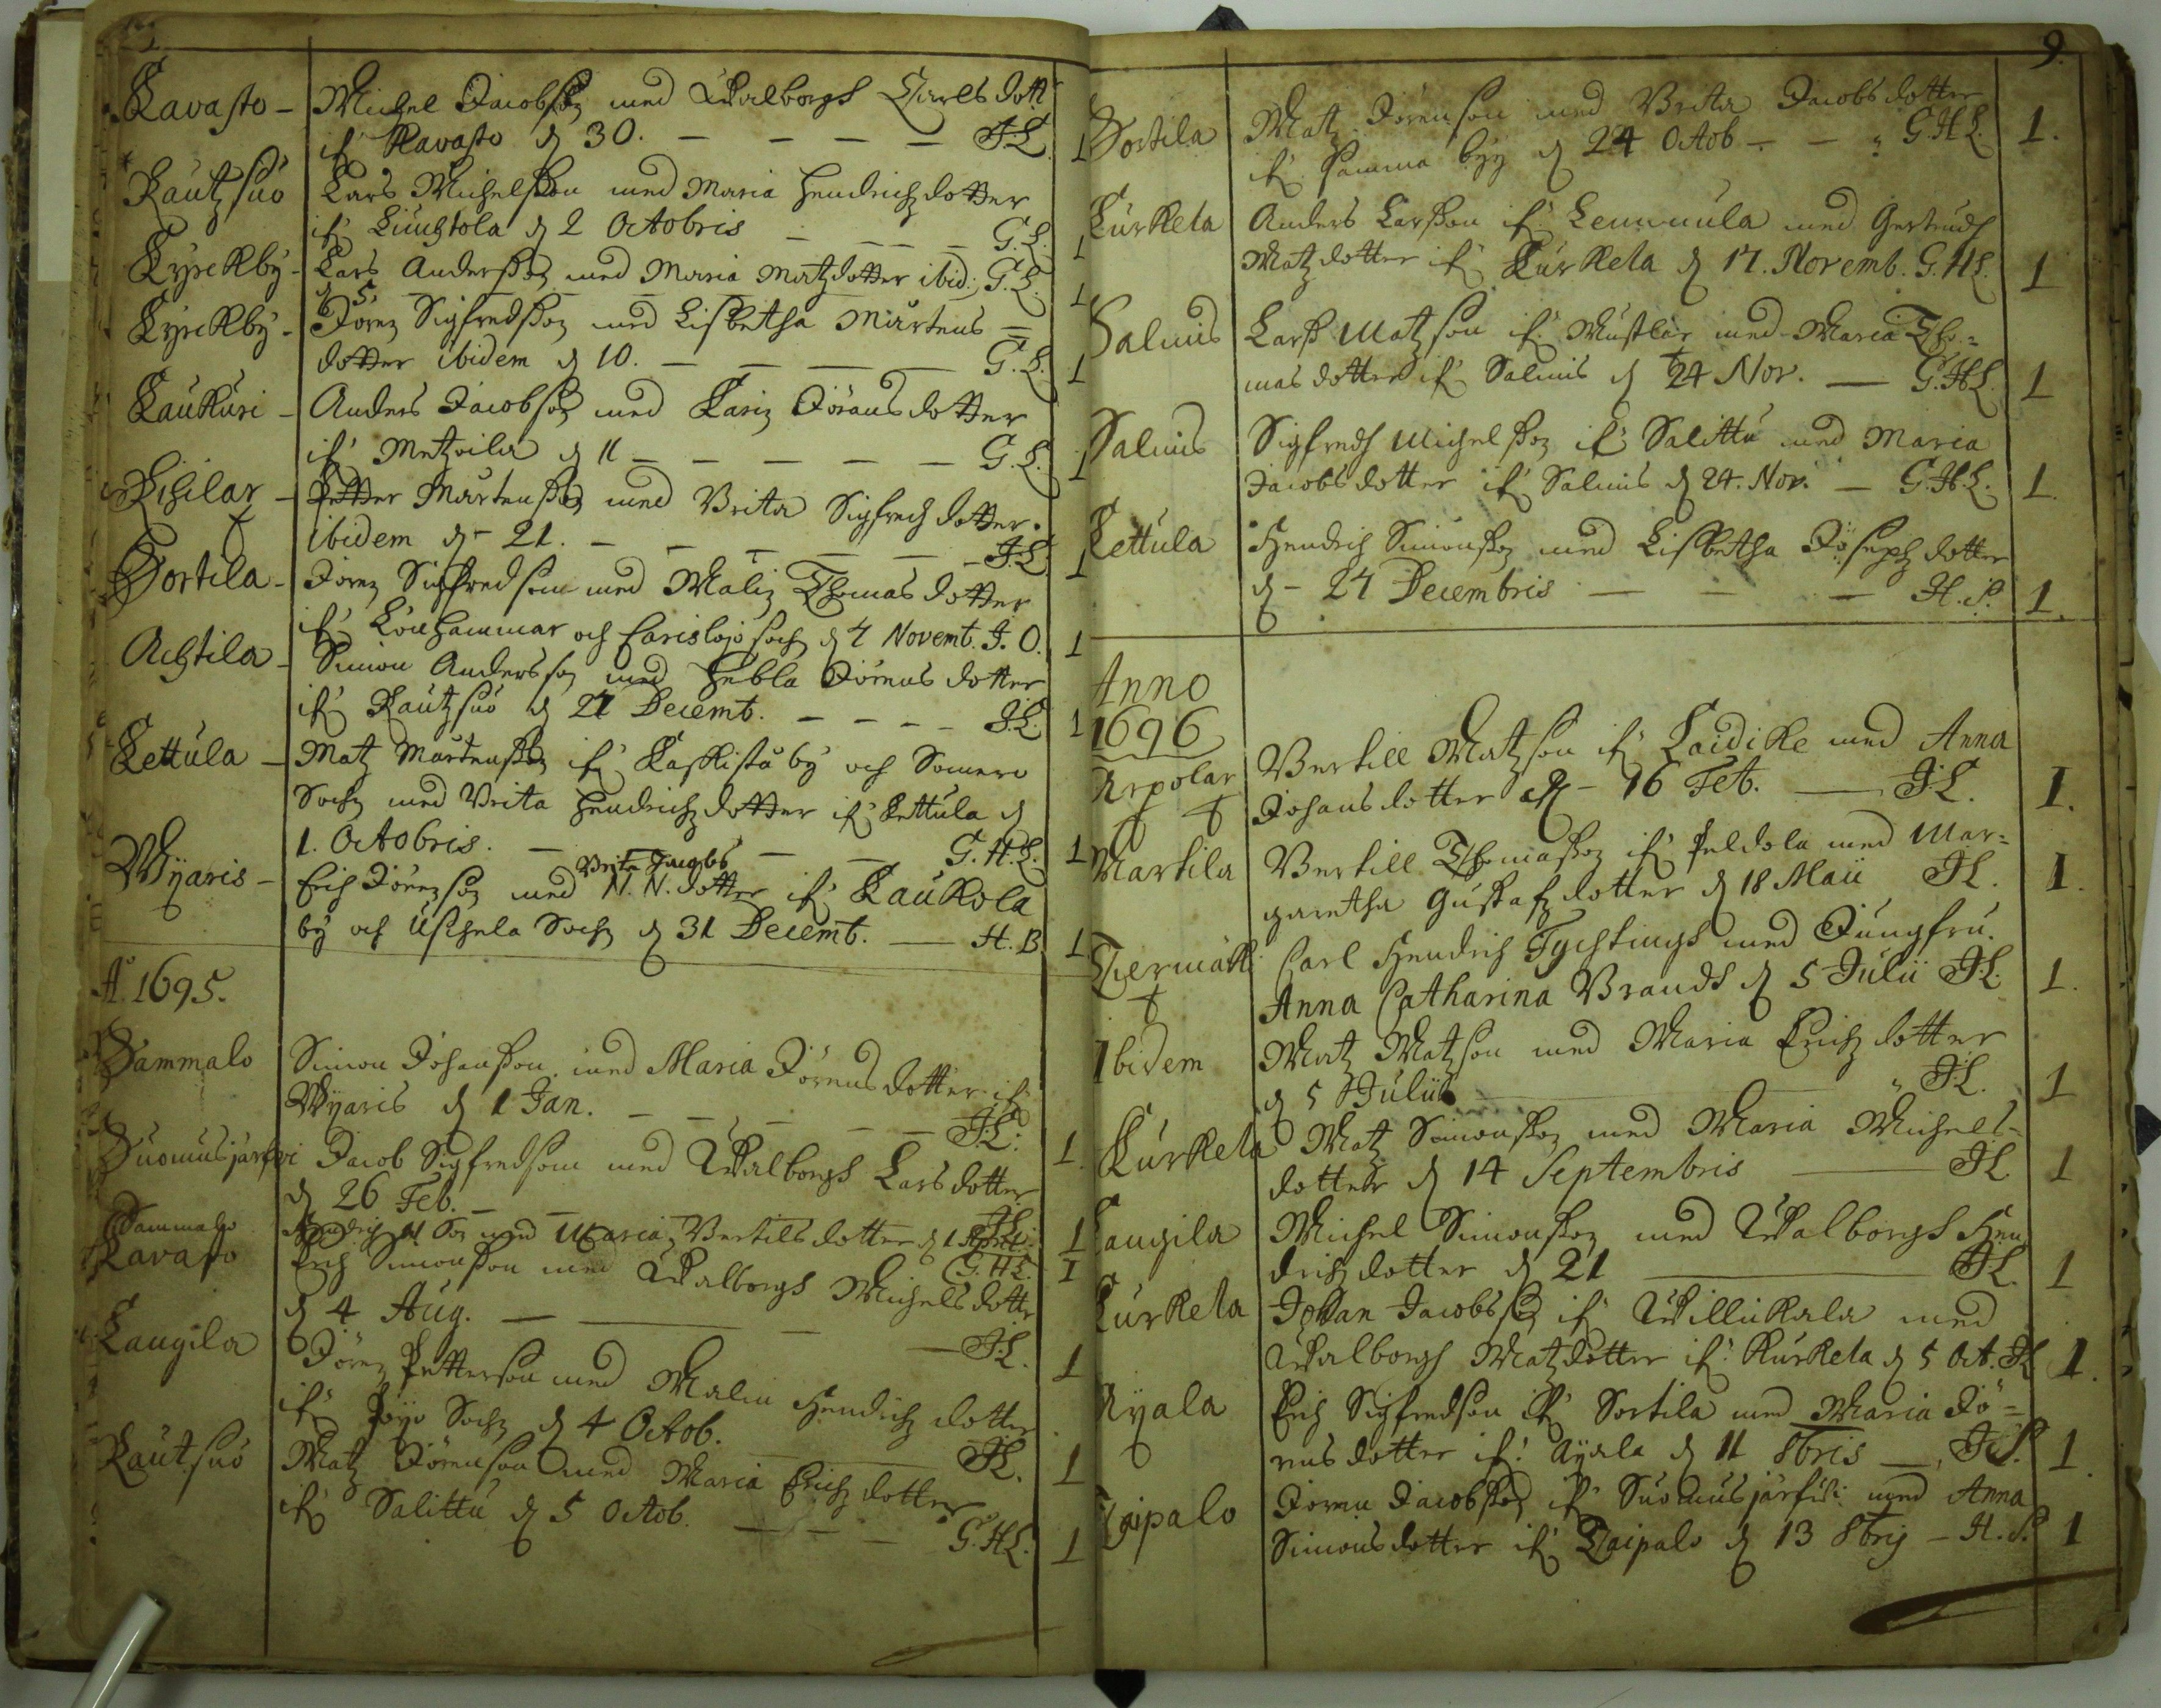 Kavasto - Michel Jacobsson med Walborgh Carlsdott
if Kavasto d 30. — — — — J.L. 1
Rautsuo Lars Michelsson med Maria Hendrichzdotter
if Liuchtola d 2 Octobris — — — G.L. 1
Kyrckby - Lars Andersson med Maria Matzdotter ibid: G.L.
d 5. — — — 1
Kyrckby - Jören Sigfredsson med Lisbetha Mårtens =
dotter ibidem d 10. — — — G.L. 1
Kaukuri - Anders Jacobsson med Karin Jöransdotter
if Metzoila d 11 — — — — — G.L. 1
Kisilar - Petter Mårtensson med Brita Sigfredzdotter
ibidem d - 21. — — — — J.L. 1
Sortila - Jören Sigfredsson med Malin Thomasdotter
if Lönhammar och Carislojo sochn d 4 Novemb. J.O. 1
Achtila - Simon Andersson med Hebla Jörensdotter
if Rautsuo d 27 Decemb. — — — J.L. 1
Kettula - Matz Mårtensson if Kaskistå by och Somero
Sochn med Brita Hendrichzdotter if Kettula d
1. Octobris. — — — G.H.L. 1
Brita Jacobs
Wÿaris - Erich Jörensson med N.N. dotter if Kaukola
by och Uskela Sochn d 31 Decemb. — H.B. 1.
A:o 1695.
Sammalo Simon Johansson med Maria Jörensdotter if
Wÿaris d 1 Jan. — — — — J.L. 1.
Suomusjärfvi Jacob Sigfredsson med Walborgh Larsdotter
d 26 Feb. — — J.L. 1
Sammalo Hendrich M. Son med Maria Bertilsdotter d 1 April.
G.H.L. 1
Kavasto Erich Simonsson med Walborgh Michelsdotter
d 4 Aug. — — — J.L. 1
Laugila Jören Pettersson med Malin Hendrichzdotter
if Pöyö Sochn d 4 Octob. J.L. 1
Rautsuo Matz Jörensson med Maria Erichzdotter
if Salittu d 5 Octob. — — — G.H.L. 1
9.
Sortila Matz Jörensson med Brita Jacobsdotter
if samma bÿÿ d 24 Octob — — G.H.L. 1.
Kurkela Anders Larsson if Lemmula med Gertrudh
Matzdotter if Kurkela d 17. Novemb. G.H.L. 1
Salmis Lars Matzson if Mustlar med Maria Tho =
masdotter if Salmis d 24 Nov. — G.H.L. 1
Salmis Sigfredh Michelsson if Salittu med Maria
Jacobsdotter if Salmis d 24. Nov. — G.H.L. 1.
Kettula Hendrich Simonsson med Lisbetha Josephzdotter
d - 27 Decembris — — — H.S. 1.
Anno
1696
Arpolar Bertill Matzson if Laidike med Anna
Johansdotter d - 16 Feb. — J.L. 1.
Martila Bertill Thomasson if Peldola med Mar =
garetha Gustafzdotter d 18 Maii J.L. 1.
Tiermäki Carl Hendrich Fychtingh med Jungfru.
Anna Catharina Brandh d 5 Julii J.L. 1.
Ibidem Matz Matzson med Maria Erichzdotter
d 5 Julii — J.L. 1
Kurkela Matz Simonsson med Maria Michels -
dotter d 14 Septembris — J.L. 1
Laugila Michel Simonsson med Walborgh Hen
drichzdotter d 21 — J.L. 1
Kurkela Johan Jacobsson if Willikkala med
Walborgh Matzdotter if Kurkela d 5 Oct. J.L. 1.
Aÿala Erich Sigfredson if Sortila med Maria Jö =
rensdotter if Aÿala d 11 8bris — J.S. 1.
Taipalo Jören Jacobsson if Suomusjärfvi med Anna
Simonsdotter if Taipalo d 13 8brij — H.S. 1